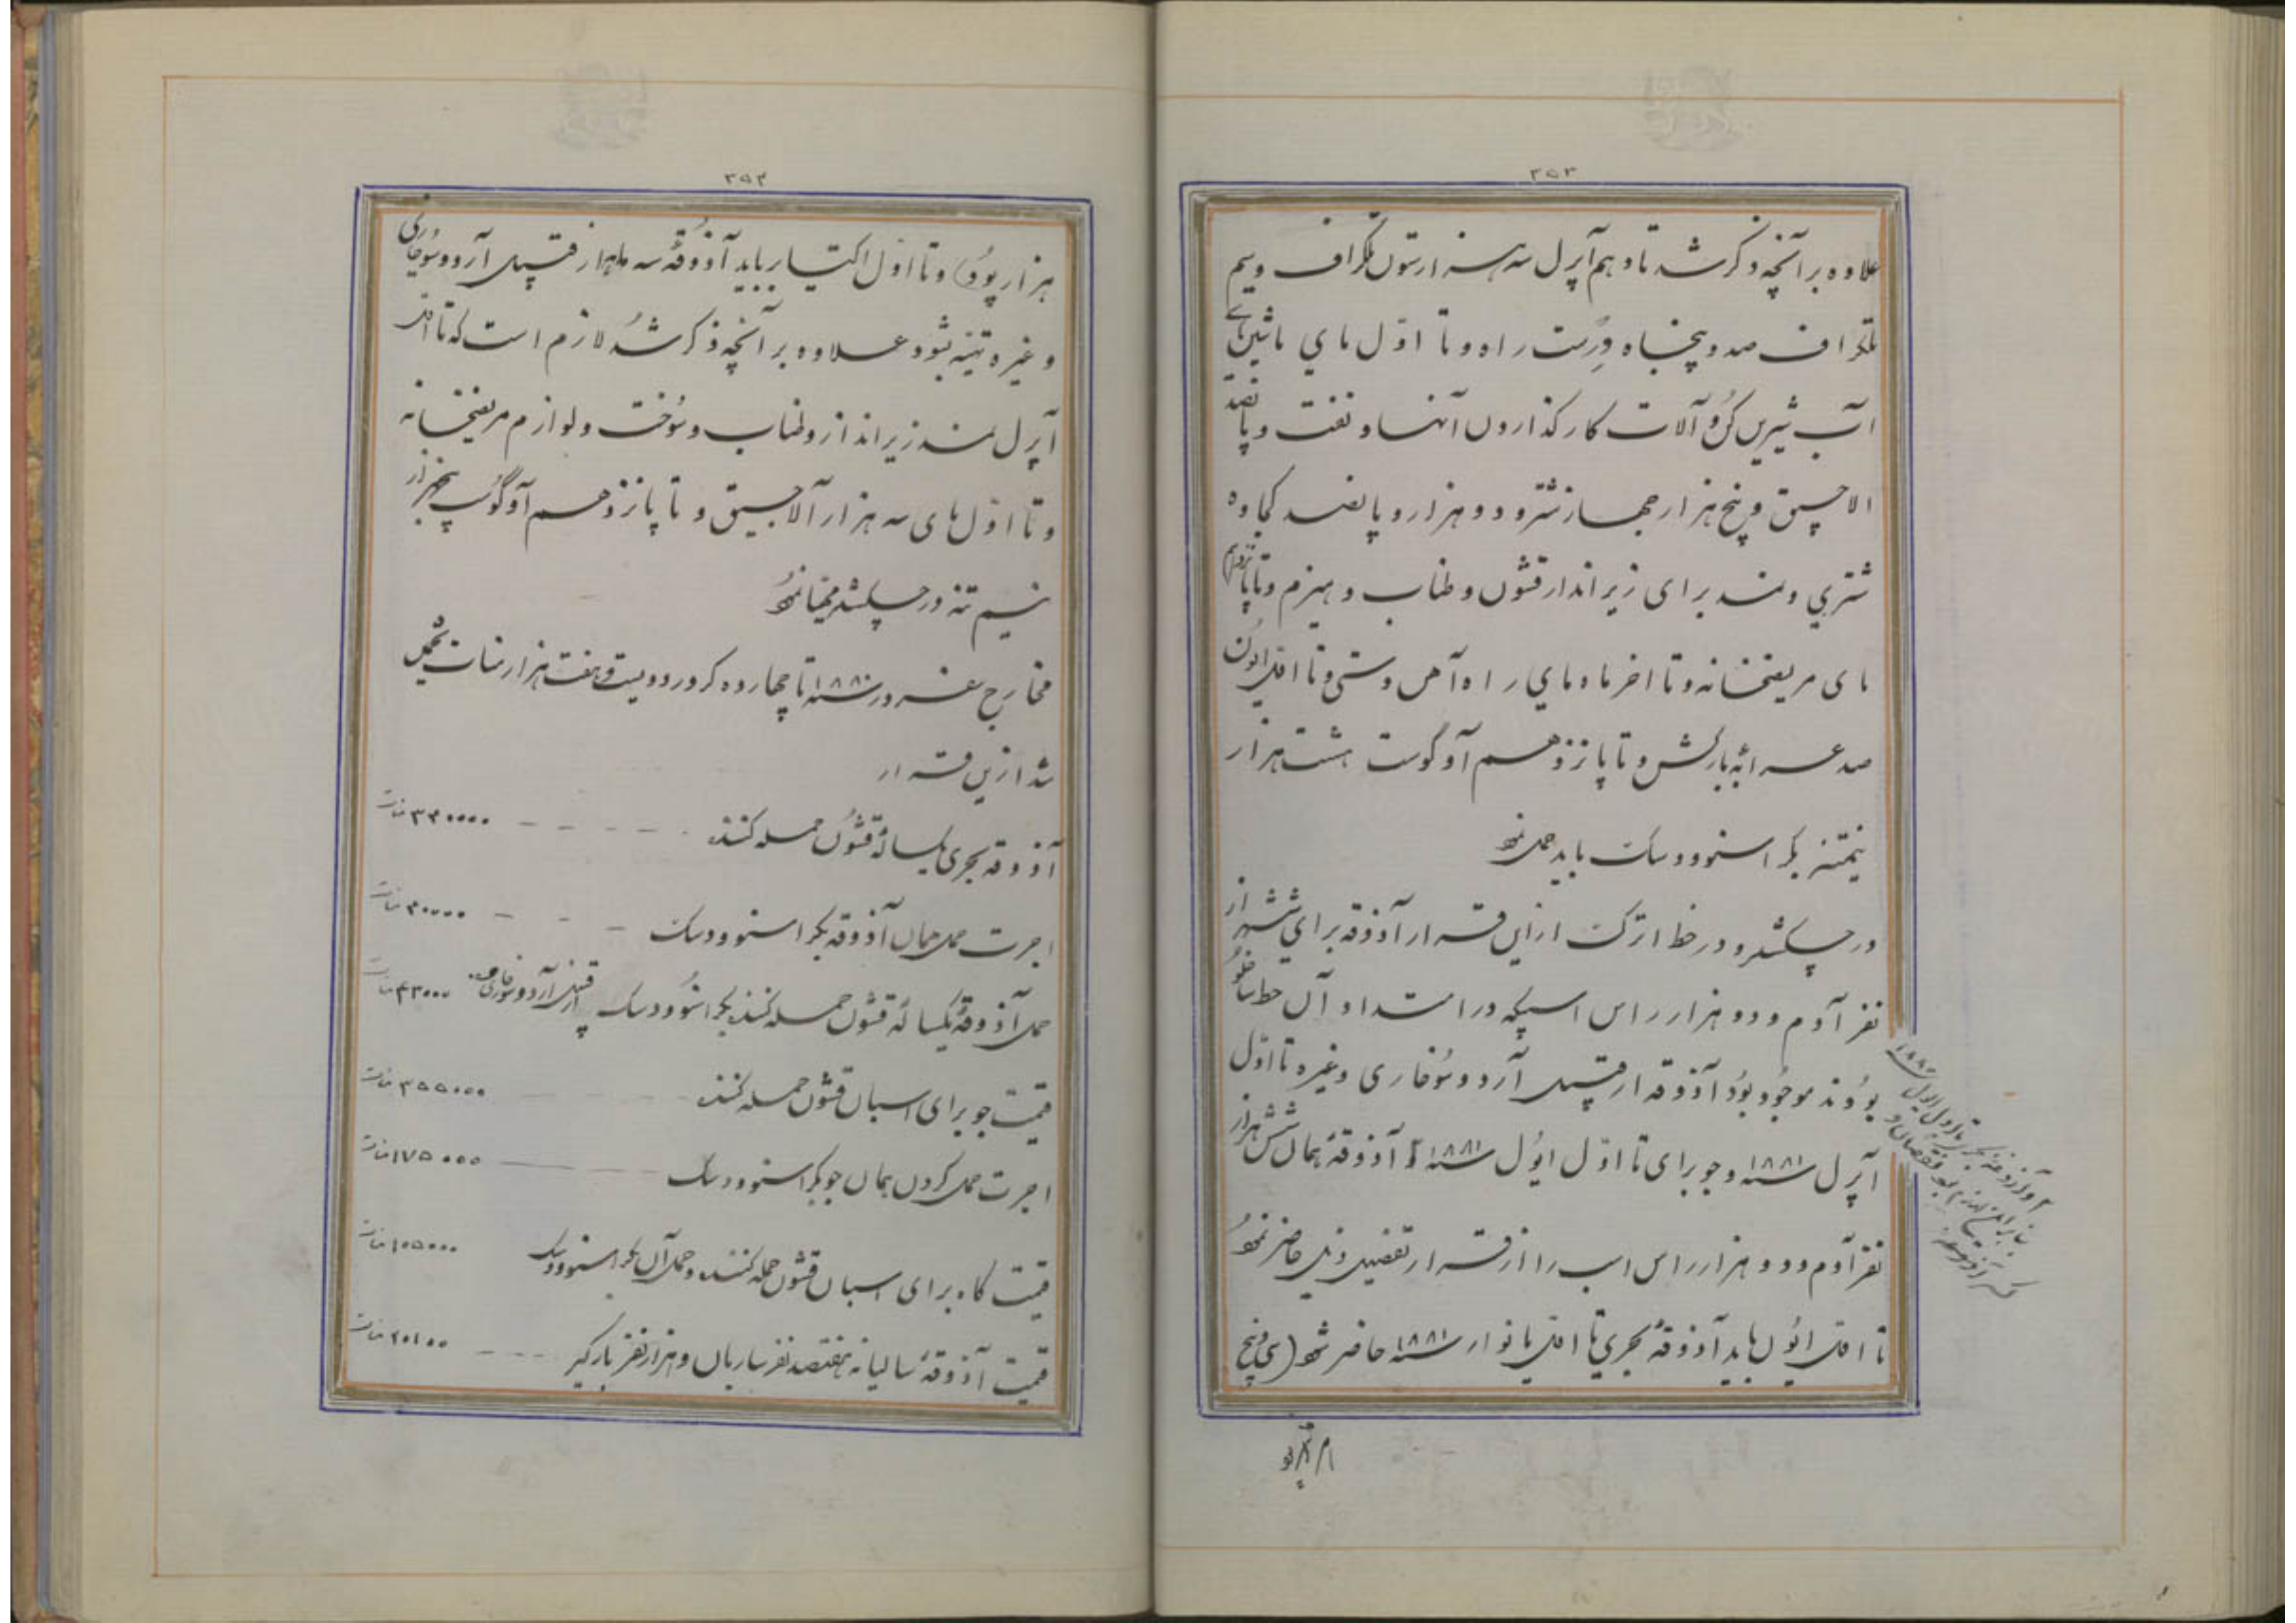 ۲۵۳
علاوه بر آنچه ذکر شد تا دهم آپرل سه هزار ستون تلگراف و سیم
تلگراف صد و پنجاه ورست راه و تا اوّل مای ماشین‌های
آب شیرین کن و آلات کار گذاردن آنها و نفت و پانصد
الاچیق و پنج هزار جهاز شتر و دو هزار و پانصد کجاوه
شتری و نمد برای زیر انداز قشون و طناب و هیزم و تا پانزدهم
مای مریضخانه و تا اخر ماه مای راه آهن دستی و تا اوّل ایون
صد عرابهٔ بارکش و تا پانزدهم آوگوست هشت هزار
نیمتنه بکراسنوودسک باید حمل نمود
در چکشلر و در خط اترک از این قرار آذوقه برای شش هزار
نفر آدم و دو هزار راس اسب که در امتداد آن خط ساخلو
بودند موجود بود آذوقه از قبیل آرد و سُوخاری و غیره تا اوّل
آپرل سنه ۱۸۸۱ و جو برای تا اوّل ایول سنه ۱۸۸۱ آذوقهٔ همان شش هزار
نفر آدم و دو هزار راس اسب را از قرار تفصیل ذیل حاضر نمود
تا اوّل ایون باید آذوقهٔ بحری تا اوّل یانوار سنه ۱۸۸۱ حاضر شود (سی و پنج
۲۵۴
هزار پود) و تا اوّل اکتیابر باید آذوقهٔ سه ماهه از قبیل آرد و سوخاری
و غیره تهیّه شود علاوه بر آنچه ذکر شد لازم است که تا اوّل
آپرل نمد زیر انداز و طناب و سُوخت و لوازم مریضخانه
و تا اوّل مای سه هزار آلاچیق و تا پانزدهم آوگوست پنجهزار
نیم تنه در چکشلر مهیّا نمود
مخارج سفر در سنه ۱۸۸۰ تا چهارده کرور و دویست و هفت هزار منات تخمین
شد ازین قرار
آذوقه بحری یکسالهٔ قشون حمله کننده ۳۴۰۰۰۰ منات
اجرت حمل همان آذوقه بکراسنوودسک
حمل آذوقهٔ یکسالهٔ قشون حمله کننده بکراسنوودسک از قبیل آرد و سوخاری و غیره
قیمت جو برای اسبان قشون حمله کننده ۳۵۵۰۰۰ منات
اجرت حمل کردن همان جو بکراسنوودسک ۱۷۵۰۰۰ منات
قیمت کاه برای اسبان قشون حمله کننده و حمل آن بکراسنوودسک ۱۰۵۰۰۰ منات
قیمت آذوقهٔ سالیانه هفتصد نفر ساربان و هزار نفر بارگیر ۲۰۱۰۰ منات